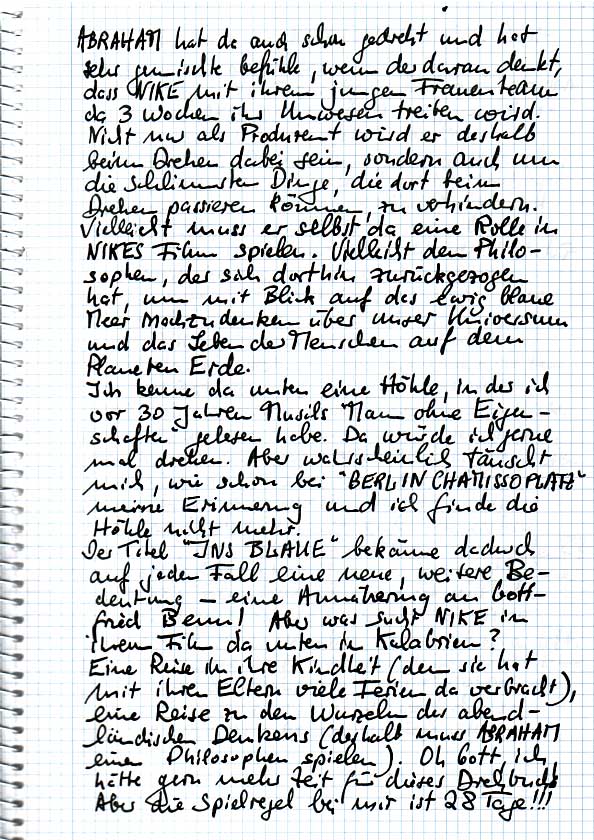 ABRAHAM hat da auch schon gedreht und hat
sehr gemischte Gefühle, wenn der daran denkt,
dass NIKE mit ihrem jungen Frauenteam
da 3 Wochen ihr Unwesen treiben wird.
Nicht nur als Produzent wird er deshalb
beim Drehen dabei sein, sondern auch um
die schlimmsten Dinge, die dort beim
Drehen passieren können, zu verhindern.
Vielleicht muss er selbst da eine Rolle in
NIKES Film spielen. Vielleicht den Philo-
sophen, der sich dorthin zurückgezogen
hat, um mit Blick auf das ewig blaue
Meer nachzudenken über unser Universum
und das Leben der Menschen auf dem
Planeten Erde.
Ich kenne da unten eine Höhle, in der ich
vor 30 Jahren Musils "Mann ohne Eigen-
schaften" gelesen habe. Da würde ich gerne
mal drehen. Aber wahrscheinlich täuscht
mich, wie schon bei "BERLIN CHAMISSOPLATZ"
meine Erinnerung und ich finde die
Höhle nicht mehr.
Der Titel "INS BLAUE" bekäme dadurch
auf jeden Fall eine neue, weitere Be-
deutung – eine Annäherung an Gott-
fried Benn! Aber was sucht NIKE in
ihrem Film da unten in Kalabrien?
Eine Reise in ihre Kindheit (denn sie hat
mit ihren Eltern viele Ferien da verbracht),
eine Reise zu den Wurzeln des abend-
ländischen Denkens (deshalb muss ABRAHAM
einen Philosophen spielen). Oh Gott, ich
hätte gern mehr Zeit für dieses Drehbuch
Aber die Spielregel bei mir ist 28 Tage!!!